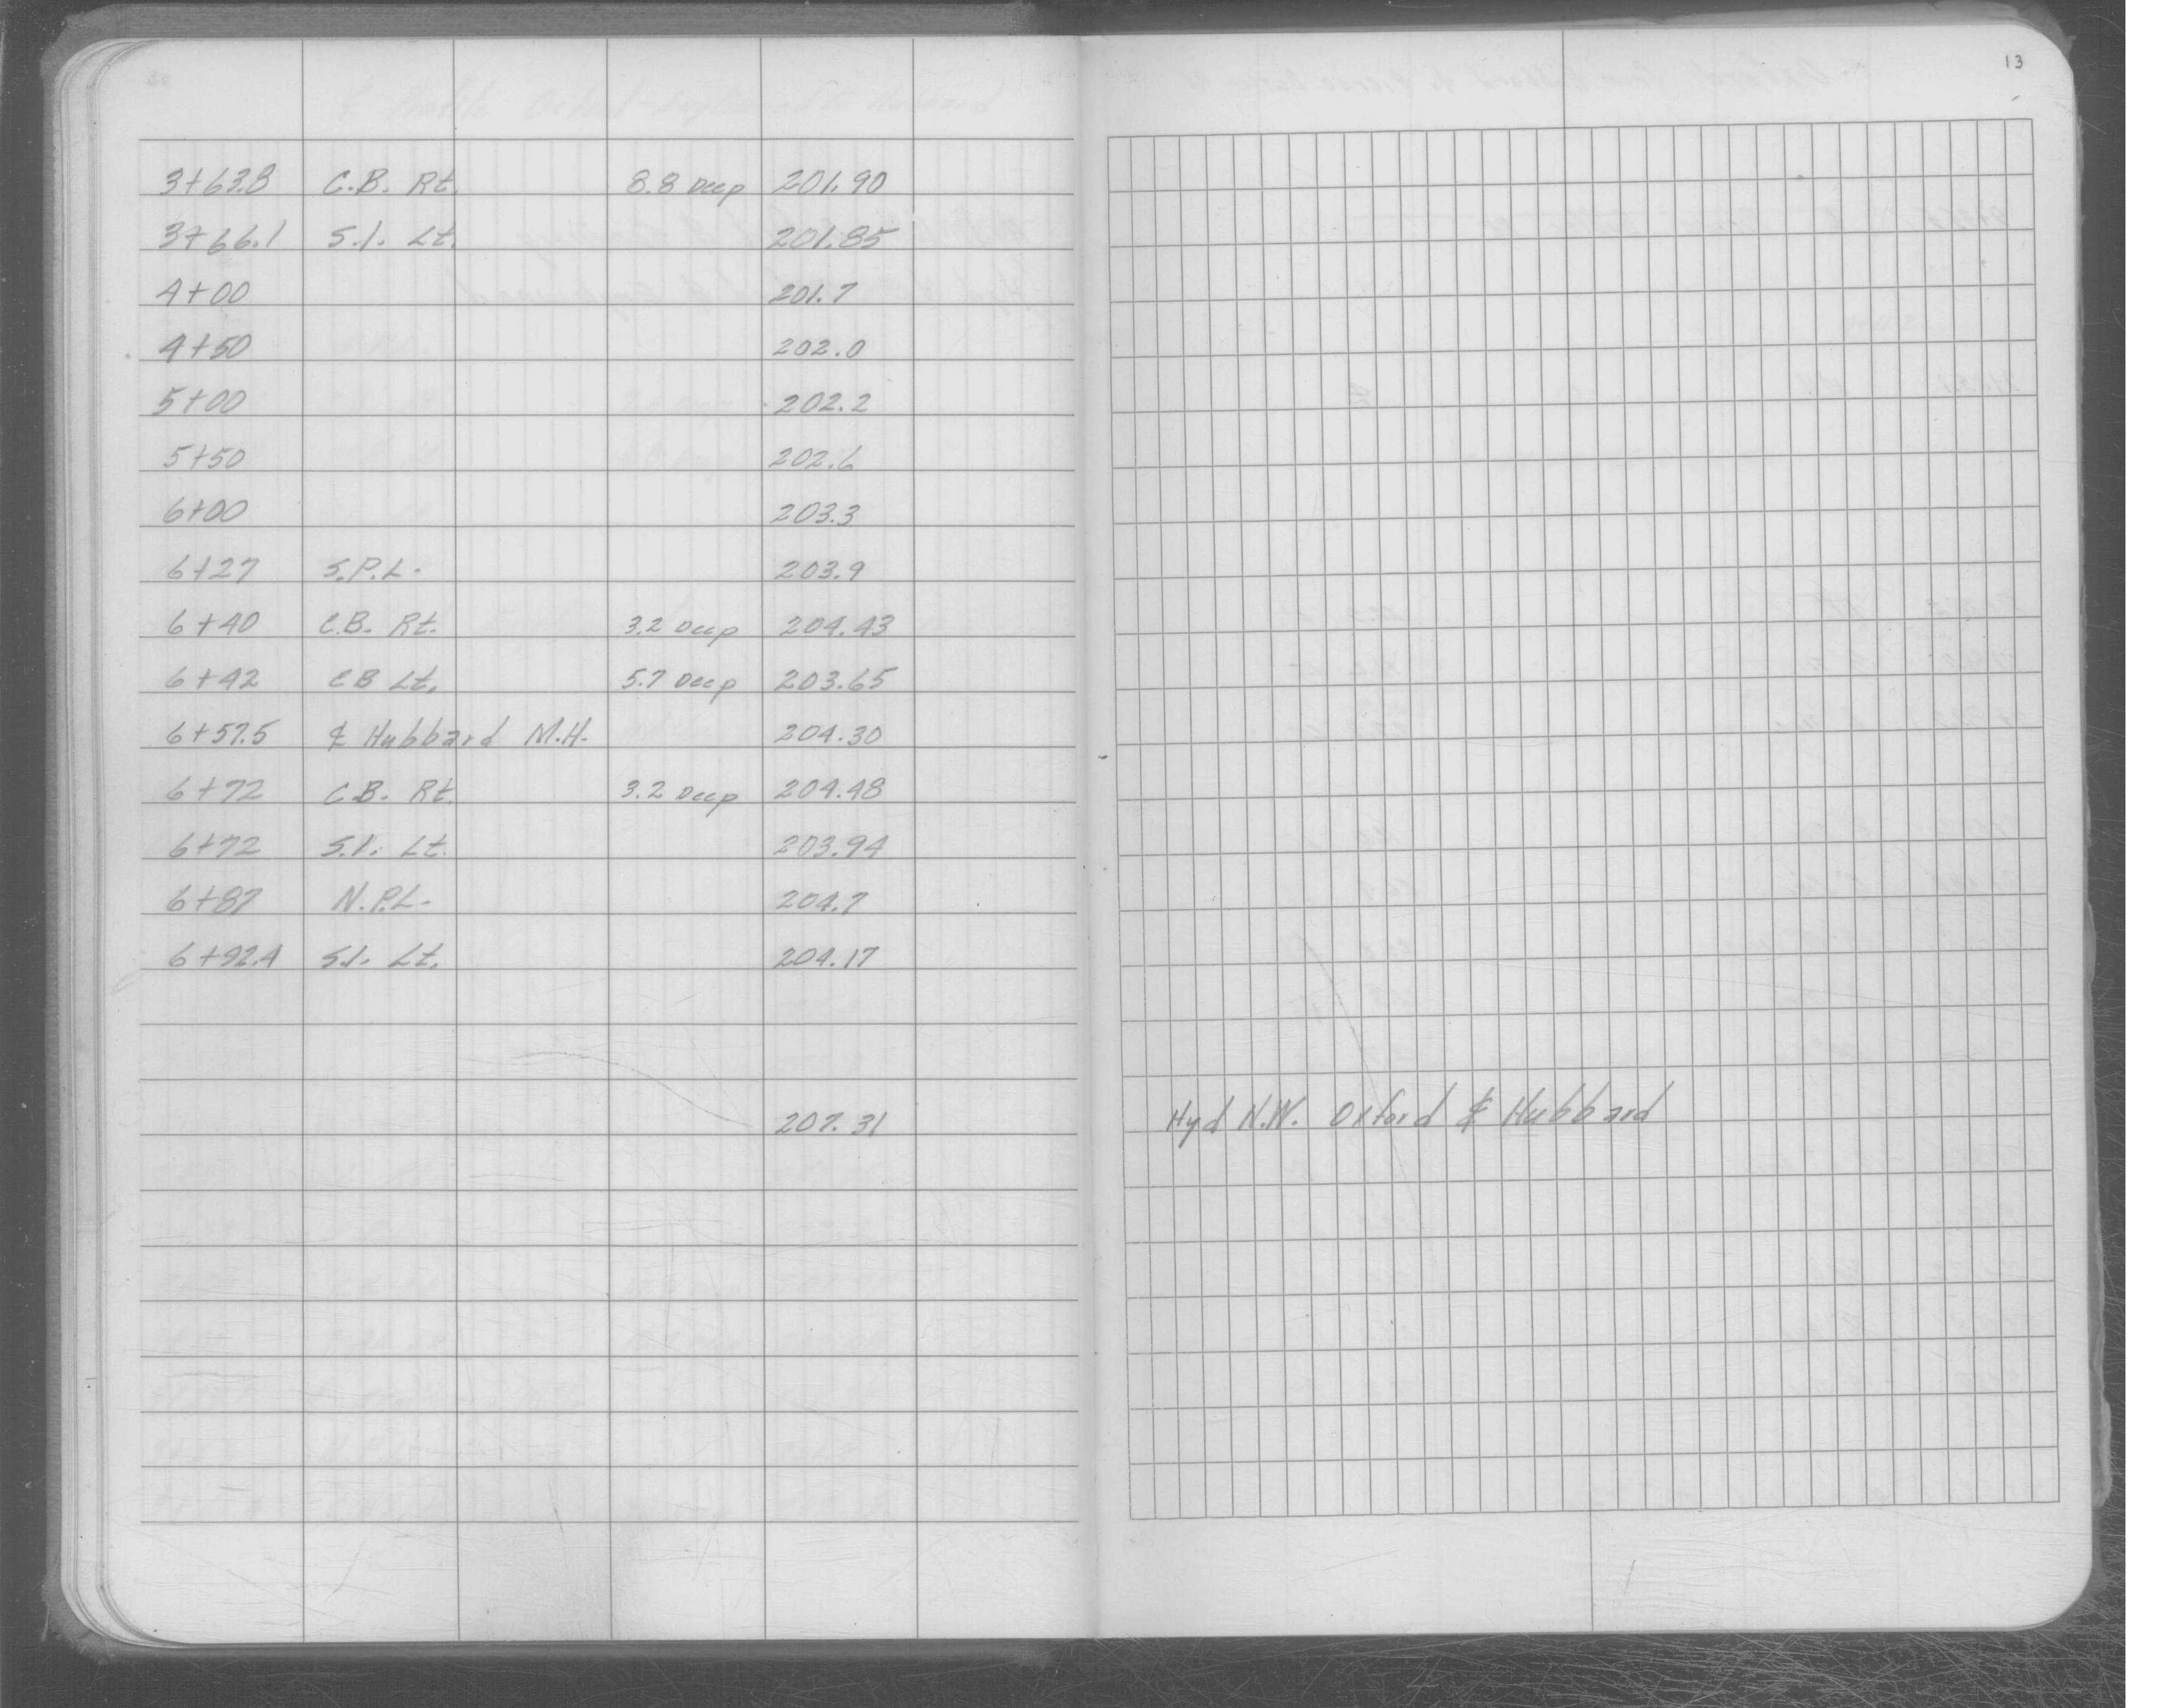 13
3+63.8 C.B. Rt. 8.8 Deep 201.90
3+66.1 S.I. Lt. 201.85
4+00 201.7
4+50 202.0
5+00 202.2
5+50 202.6
6+00 203.3
6+27 S.P.L. 203.9
6+40 C.B. Rt. 3.2 Deep 204.43
6+42 CB Lt. 5.7 Deep 203.65
6+57.5 ₵ Hubbard M.H. 204.30
6+72 C.B. Rt. 3.2 Deep 204.48
6+72 S.I. Lt. 203.94
6+87 N.P.L. 204.7
6+92.4 S.I. Lt. 204.17
207.31 Hyd N.W. Oxford & Hubbard